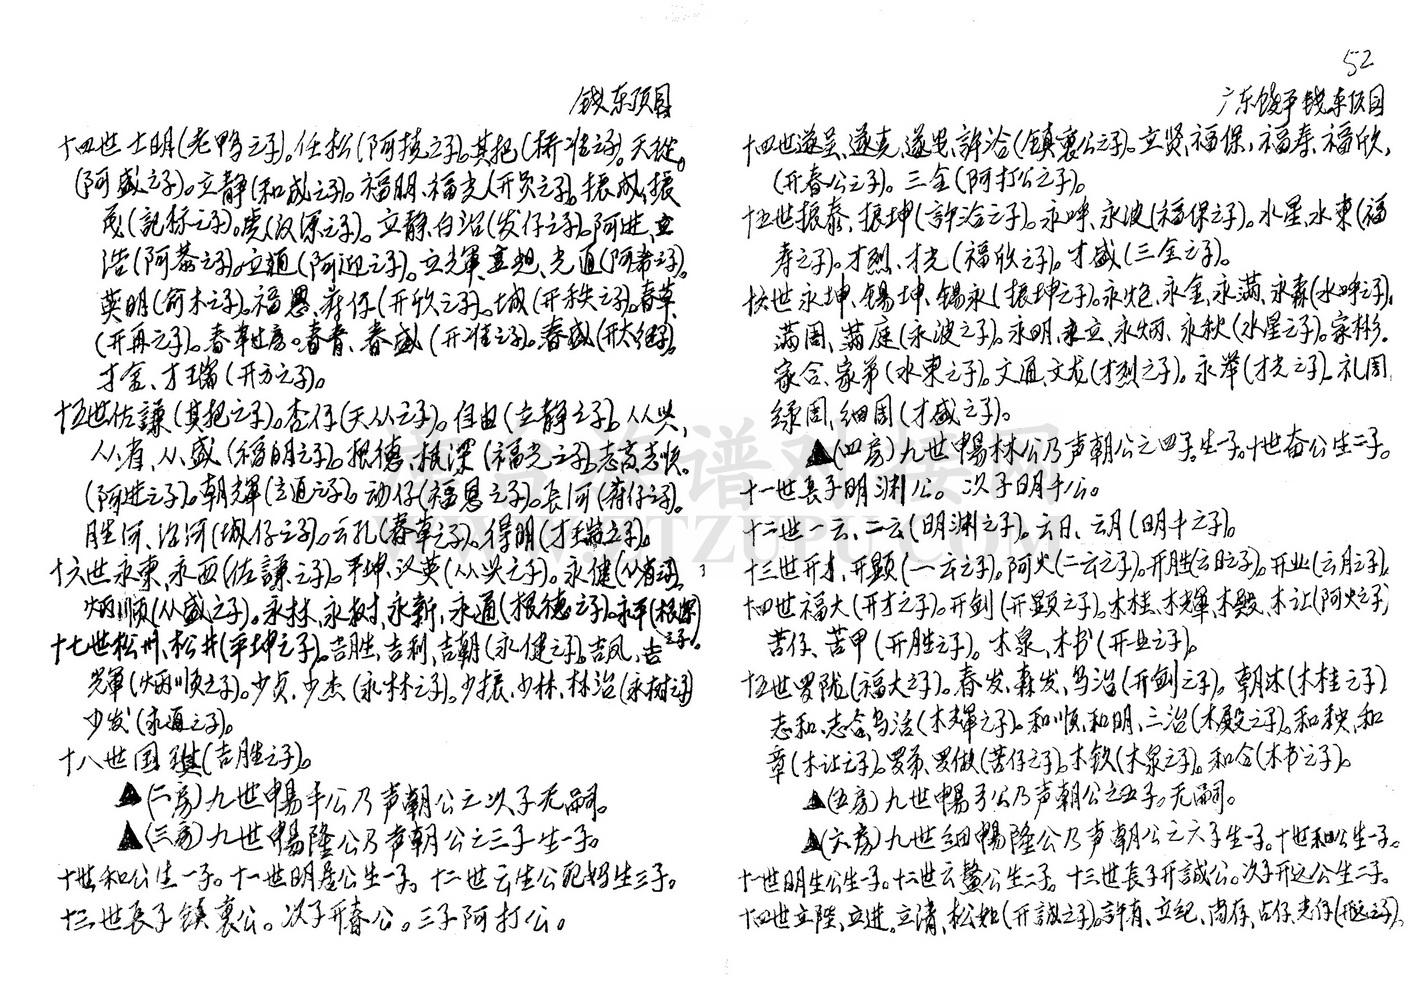 钱东顶园
十四世士明(老鸭之子)。任松(阿擡之子)。其把(桥淮之子)。天從。
(阿盛之子)。立静(和成之子)。福明、福光(开贡之子)。振成、振
茂(記标之子)。虎(汉深之子)。立静、白沿(发仔之子)。阿进、立
浩(阿蔡之子)。立通(阿迎之子)。立輝、光通(阿希之子)。
英明(俞木之子)。福恩、存仔(开欣之子)。城(开秩之子)。春草
(开再之子)。春青、春盛(开淮之子)。春盛(开大之子)。
才金、才瑞(开方之子)。
十五世佐謙(其把之子)。杏仔(天从之子)。自由(立静之子)。从兴、
从省、从盛(福明之子)。根德、根深(福光之子)。志高、志
(阿进之子)。朝輝(立通之子)。动仔(福恩之子)。長河(存仔之子)。
胜河、沿河(城仔之子)。云孔(春草之子)。得明(才瑞之子)。
十六世永東、永西(佐謙之子)。平坤、汉英(从兴之子)。永健(从省之子)、
炳順(从盛之子)。永林、永树、永新、永通(根德之子)。永平(根深之子)。
十七世松州、松井(平坤之子)。吉胜、吉利、吉朝(永健之子)。吉凤、吉
輝(炳順之子)。少贞、少杰(永林之子)。少振、少林、林治(永树之子)
少发(永通之子)。
十八世国琪(吉胜之子)。
▲(二房)九世暢千公乃声朝公之次子无嗣。
▲(三房)九世暢隆公乃声朝公之三子生一子。
十世和公生一子。十一世明居公生一子。十二世云生公配好生三子。
十三世長子镇裏公。次子开春公。三子阿打公。
52
广东饶平钱东顶园
十四世遂吴、遂克、遂忠、許洽(镇裏公之子)。立贤、福保，福寿、福欣，
(开春公之子)。三金(阿打公之子)。
十五世振泰、振坤(許洽之子)。永呼、永波(福保之子)。水星、水東(福
寿之子)。才烈、才光(福欣之子)。才盛(三金之子)。
十六世永坤、锡坤、锡永(振坤之子)。永炮、永金、永满、永森(水呼之子)。
满周、满庭(永波之子)。永明、永立、永炳、永秋(水星之子)。家彬、
家合、家弟(水東之子)。文通、文龙(才烈之子)。永举(才光之子)。礼周、
绿周、细周(才盛之子)。
▲(四房)九世暢林公乃声朝公之四子。生一子。十世奋公生二子。
十一世長子明渊公。次子明千公。
十二世一云、二云(明渊之子)。云日、云月(明千之子)。
十三世开才、开顕(一云之子)。阿火(二云之子)。开胜(云日之子)。开业(云月之子)。
十四世福大(开才之子)。开剑(开顕之子)。木桂、木輝、木毅、木让(阿火之子)
苦仔、苦甲(开胜之子)。木泉、木书(开业之子)。
十五世罗陇(福大之子)。春发、森发、乌治(开剑之子)。朝沐(木桂之子)
志和、志合、乌活(木輝之子)。和順、和明、三治(木殿之子)。和秧、和
章(木让之子)。罗弟、罗做(苦仔之子)。木钦(木泉之子)。和合(木书之子)。
▲(五房)九世暢子公乃声朝公之五子。无嗣。
▲(六房)九世細暢隆公乃声朝公之六子生一子。十世和公生一子。
十一世明生公生一子。十二世云鳌公生二子。十三世長子开誠公。次子开远公生二子。
十四世立陞、立进、立清、松如(开誠之子)。許有、立纪、尚存、占仔、光仔(开远之子)。